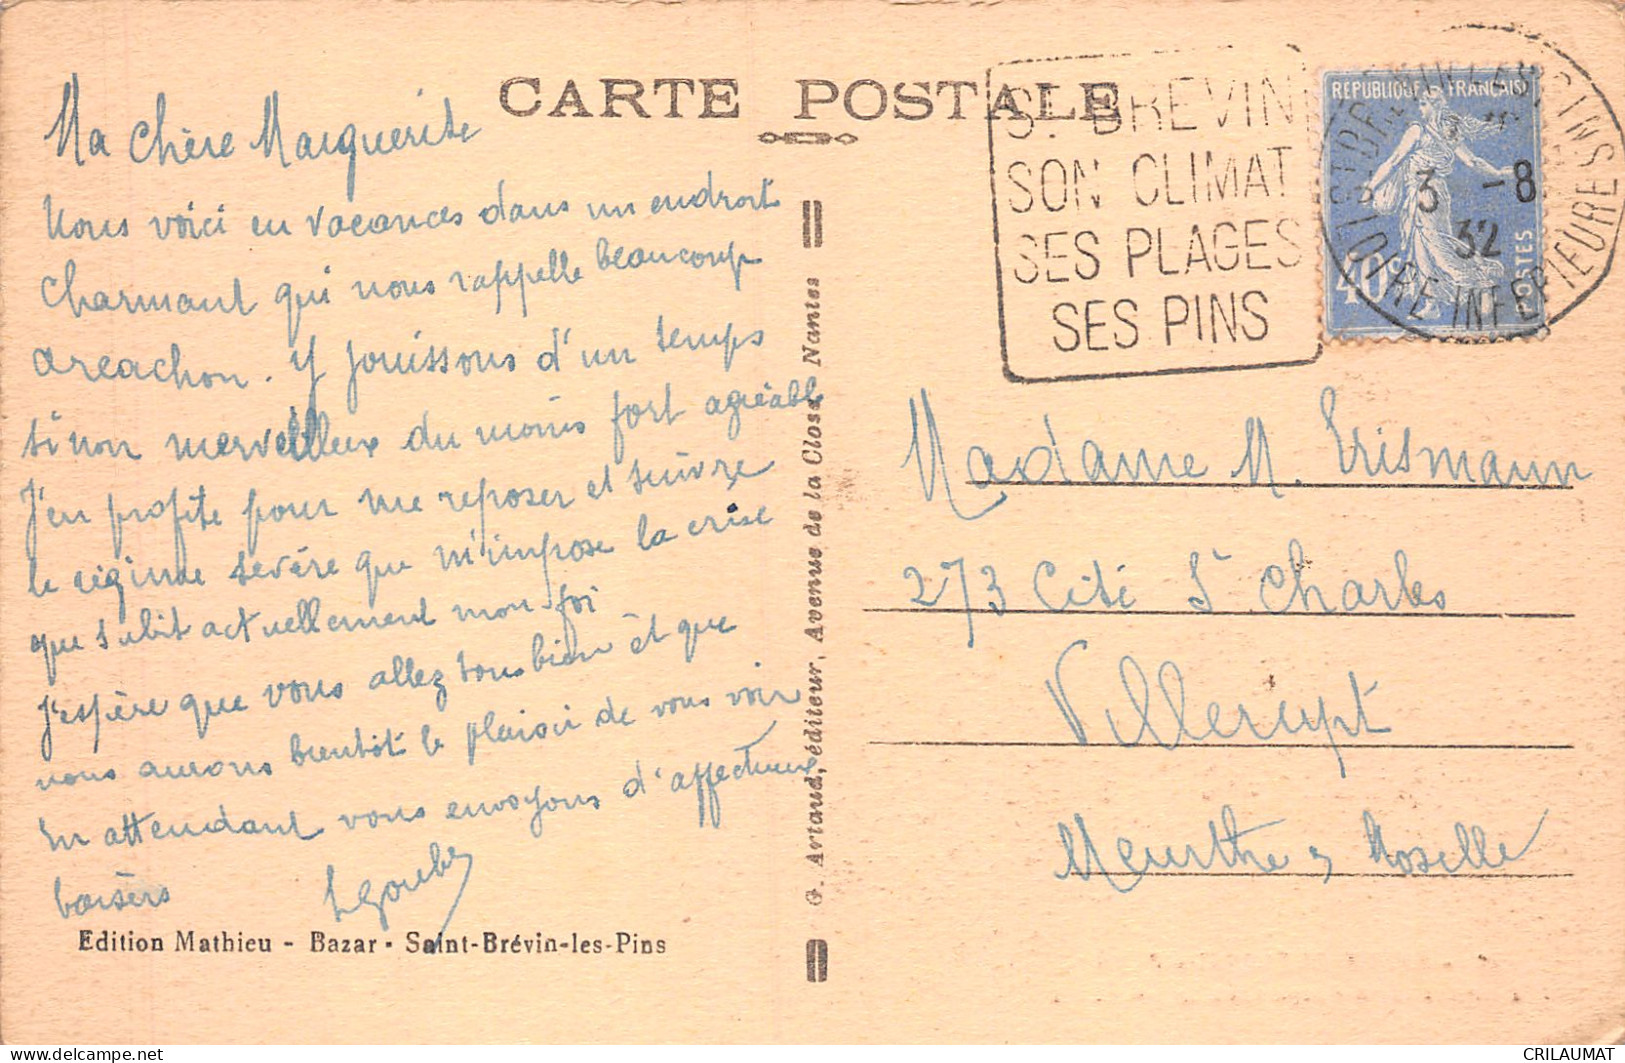 CARTE POSTALE
Ma chère Marguerite
Nous voici en vacances dans un endroit
charmant qui nous rappelle beaucoup
Arcachon. Y jouissons d'un temps
sinon merveilleux du moins fort agréable
J'en profite pour me reposer et suivre
le régime sevère que m'impose la crise
que subit actuellement mon foi
J'espère que vous allez tous bien et que
nous aurons bientôt le plaisir de vous voir
En attendant vous envoyons d'affectueux
baisers
Edition Mathieu - Bazar - Saint-Brévin-les-Pins
G. Artaud, éditeur, Avenue de la Close, Nantes
ST BREVIN
SON CLIMAT
SES PLAGES
SES PINS
REPUBLIQUE FRANÇAISE
40c
POSTES
3 -8
32
LOIRE INFERIEURE
Madame M. Erismann
273 Cité St Charles
Villerupt
Meurthe & Moselle
CRILAUMAT